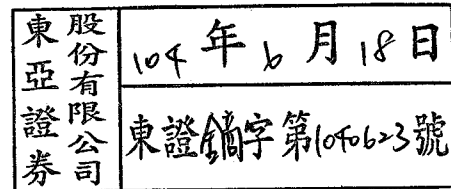 東亞證券
股份有限公司
104年6月18日
東證鏑字第1040623號